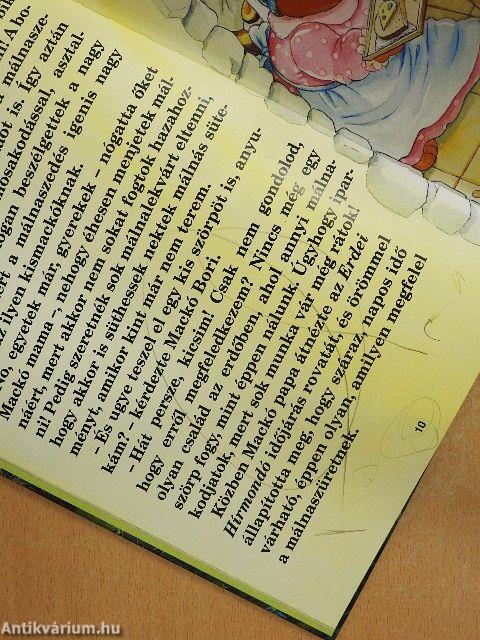 málnasze-
ot is. Így aztán
mosakodással, asztal-
beszélgettek a nagy
a málnaszedés igenis nagy
ilyen kismackóknak.
egyetek már, gyerekek – nógatta őket
Mackó mama –, nehogy éhesen menjetek mál-
náért, mert akkor nem sokat fogtok hazahoz-
ni! Pedig szeretnék sok málnalekvárt eltenni,
hogy akkor is süthessek nektek málnás süte-
ményt, amikor kint már nem terem.
– És ugye teszel el egy kis szörpöt is, anyu-
kám? – kérdezte Mackó Bori.
– Hát persze, kicsim! Csak nem gondolod,
hogy erről megfeledkezem? Nincs még egy
olyan család az erdőben, ahol annyi málna-
szörp fogy, mint éppen nálunk. Úgyhogy ipar-
kodjatok, mert sok munka vár még rátok!
Közben Mackó papa átnézte az Erdei
Hírmondó időjárás rovatát, és örömmel
állapította meg, hogy száraz, napos idő
várható, éppen olyan, amilyen megfelel
a málnaszüretnek.
10
Antikvárium.hu